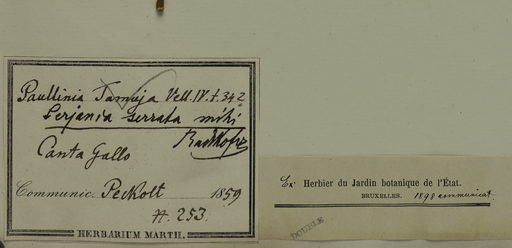 Paullinia Tamuja Vell. IV. t. 34 2
Serjania serrata mihi
Radlkofer
Canta Gallo
Communic. Peckolt 1859
#. 253.
HERBARIUM MARTII.
Ex Herbier du Jardin botanique de l'État.
BRUXELLES. 1898 communicat.
DOUBLE